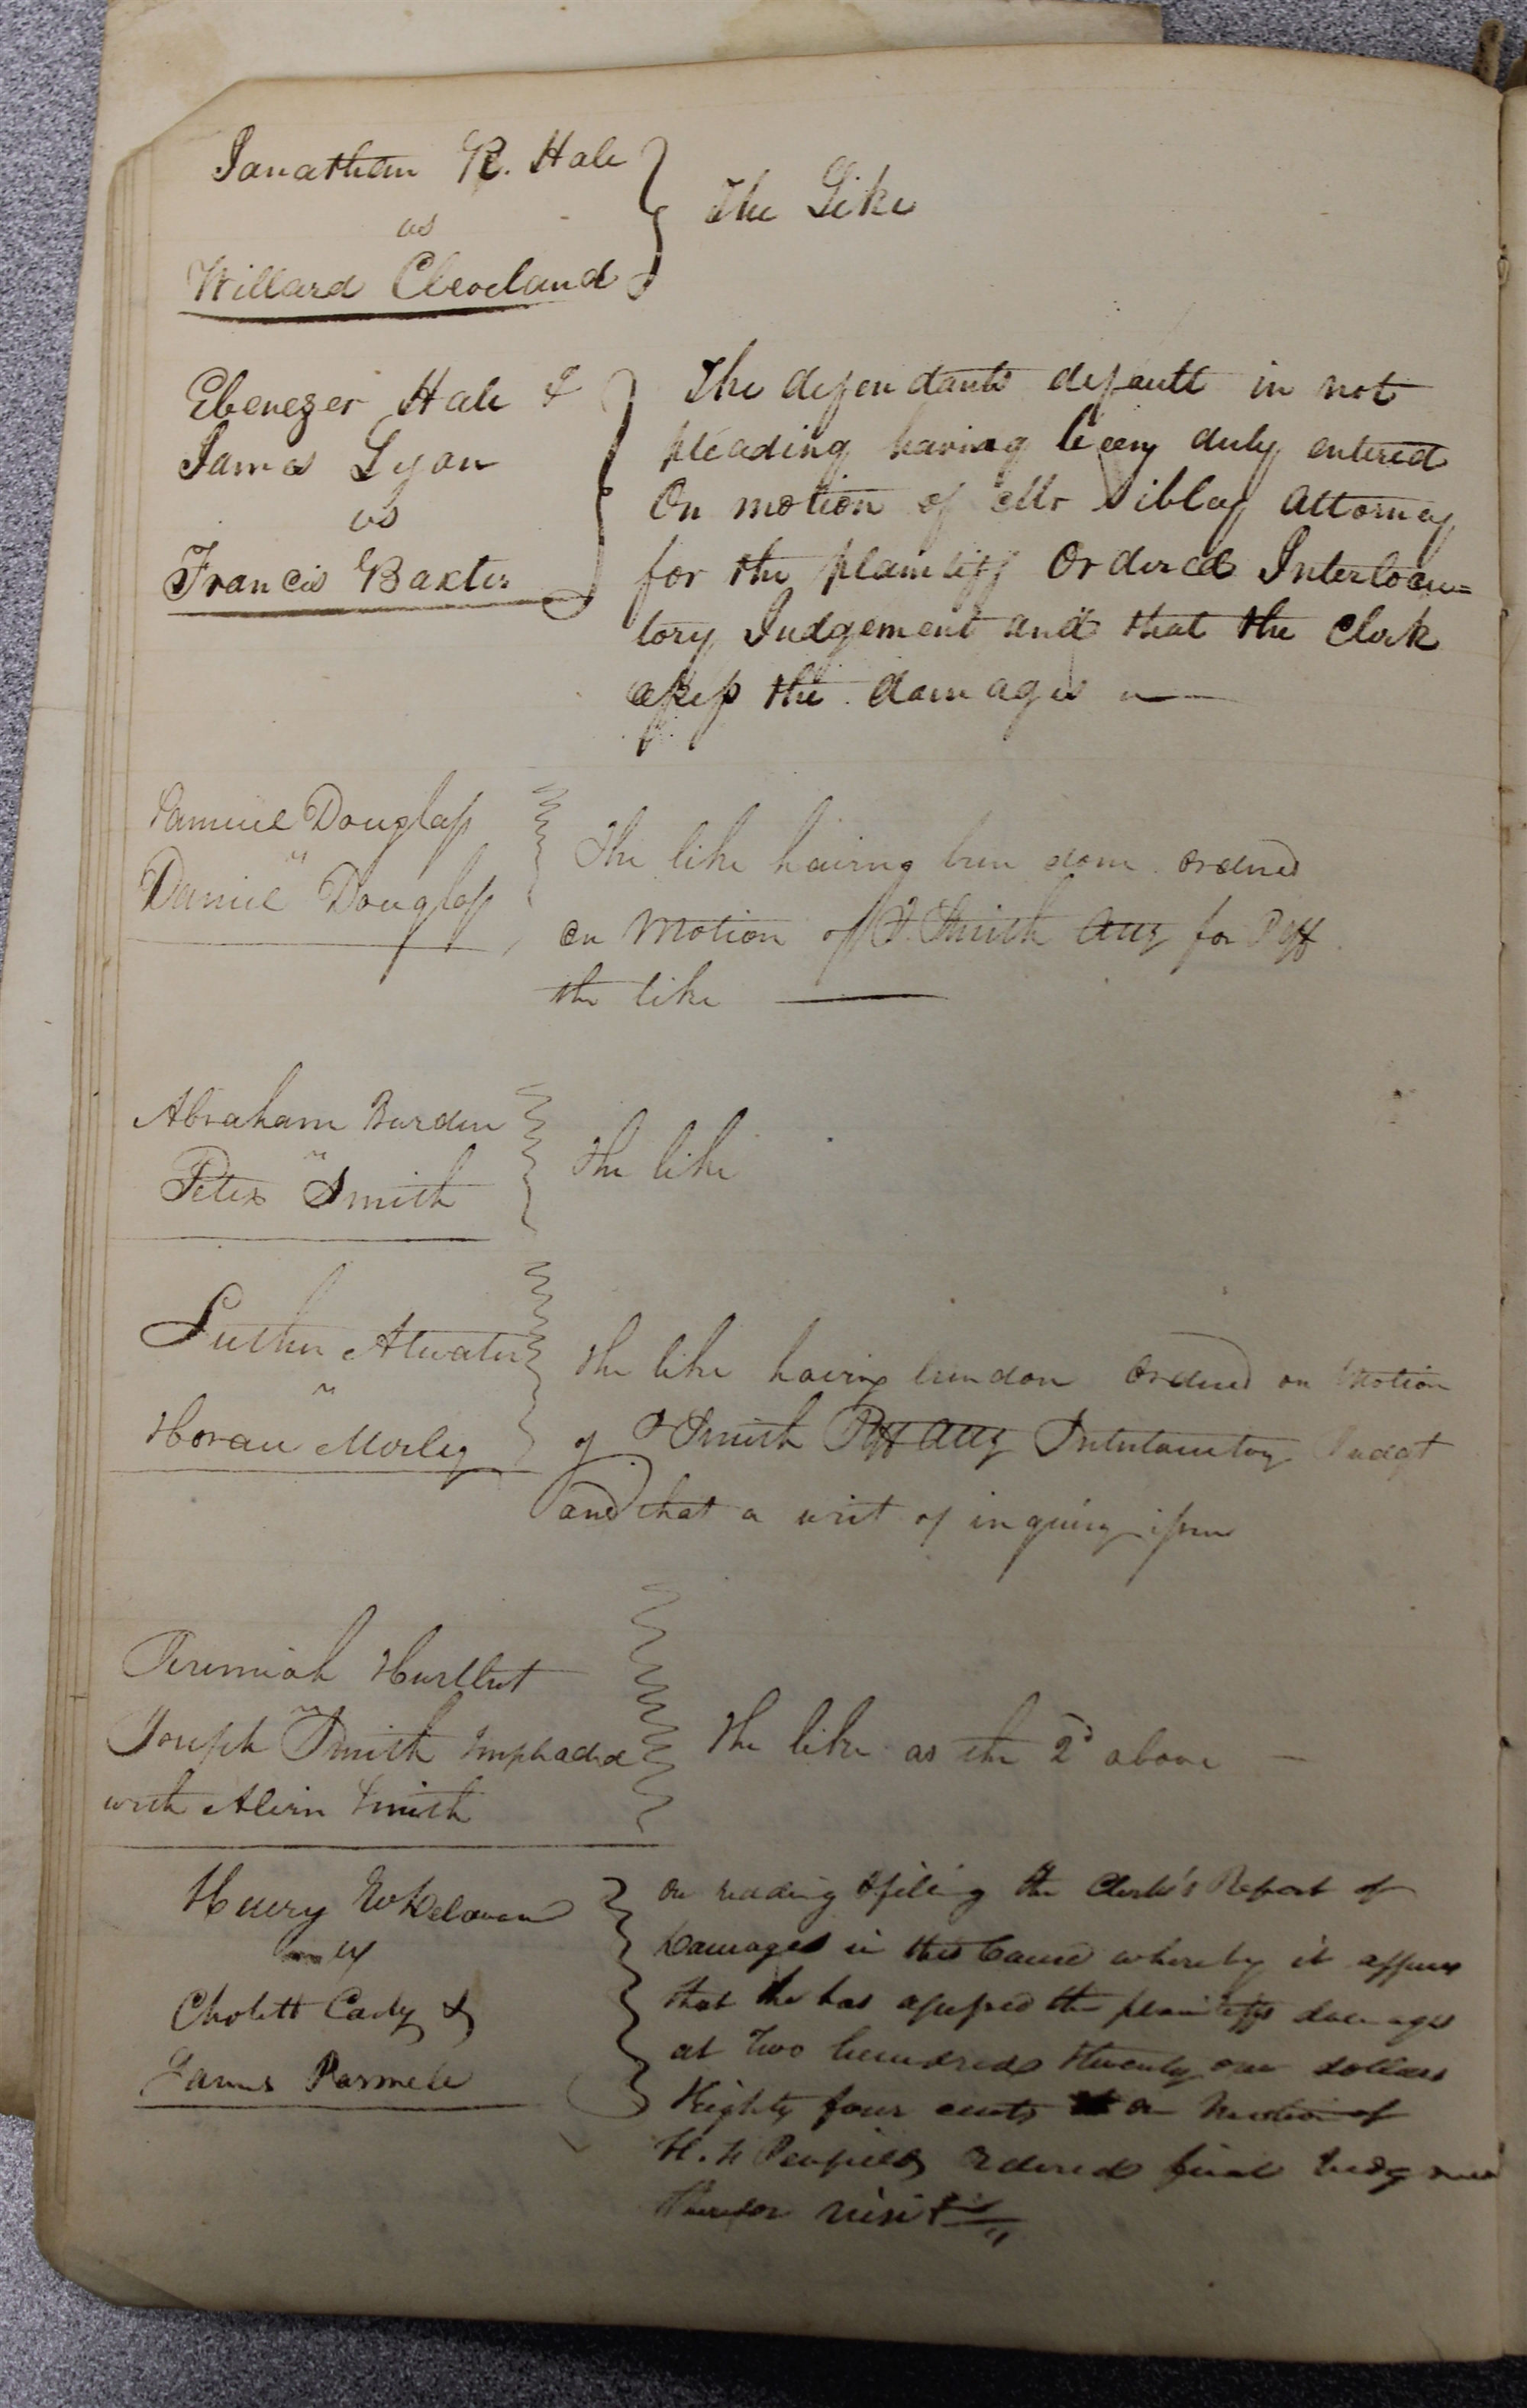 Jonathan R. Hale
vs
Willard Cleveland
The Like
Ebenezer Hale &
James Lyon
vs
Francis Baxter
The defendants default in not
pleading having been duly entered
On motion of Mr Sibley attorney
for the plaintiff Ordered Interlocu=
tory Judgement and that the Clerk
assess the damages
Samuel Douglass
"
Daniel Douglass
The like having been done ordered
on motion of J. Smith Atty for Plff
the like
Abraham Burden
"
Peter Smith
The like
Luther Atwater
"
Horace Morley
The like having been don ordered on motion
of J Smith Plff Atty Interlocutory Judgt
and that a writ of inquiry issue
Jeremiah Hurlbut
"
Joseph Smith Impleaded
with Alvin Smith
The like as the 2d above
Henry W Delavan
vs
Cholett Cady &
James Parmele
On reading & filing the Clerk's Report of
Damages in this Cause whereby it appears
that he has assessed the plaintiffs damages
at Two hundred & twenty one dollars
& eighty four cents on motion of
H. F Penfield ordered final Judgment
therefor nisi &c